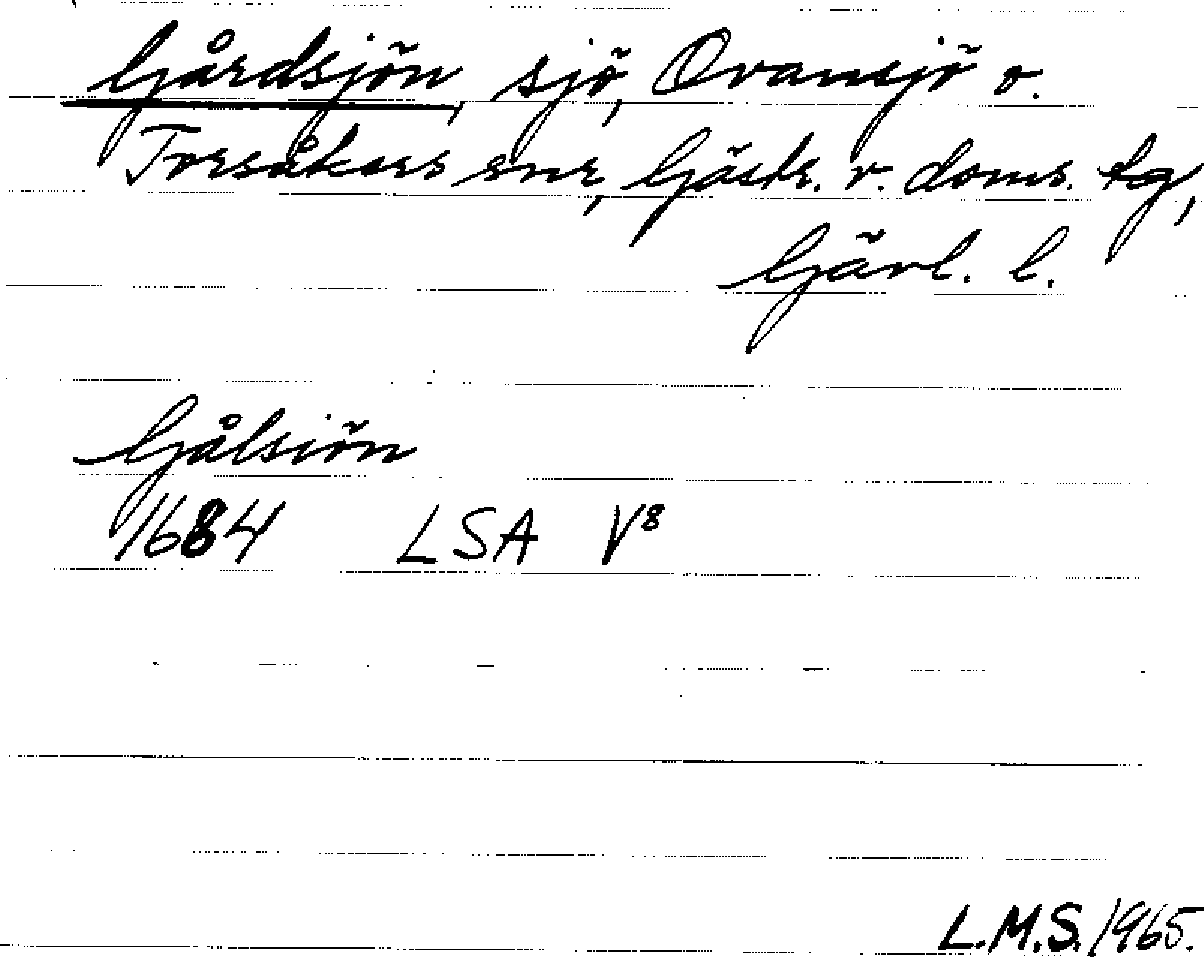 Gårdsjön, sjö, Ovansjö o.
Torsåkers snr, Gästr. v. doms. tg,
Gävl. l.
Gålsiön
1684 LSA V⁸
L.M.S. 1965.